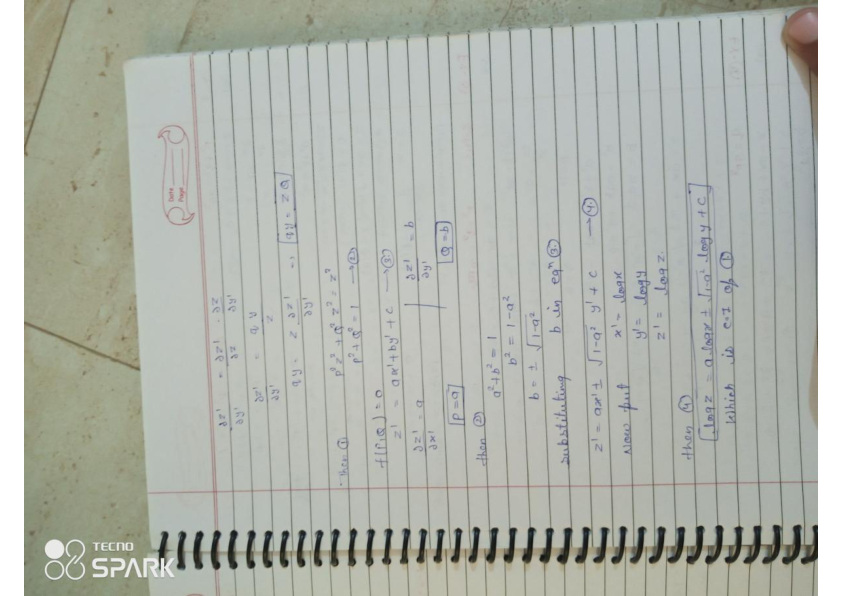 Date
Page
∂z'/∂y' = ∂z'/∂z · ∂z/∂y'
∂z'/∂y' = q y/z
qy = z ∂z'/∂y' => [qy = zQ]
Then ① p²z² + Q² z² = z²
p² + Q² = 1 —②
f(P,Q) = 0
z' = ax' + by' + c —③
∂z'/∂x' = a | ∂z'/∂y' = b
[P = a] [Q = b]
then ②
a² + b² = 1
b² = 1 - a²
b = ± √1-a²
substituting b in eqⁿ ③
z' = ax' ± √1-a² y' + c —④
Now put x' = logx
y' = logy
z' = logz.
then ④
[logz = a logx ± √1-a² logy + c]
Which is c.I of ①
TECNO
SPARK